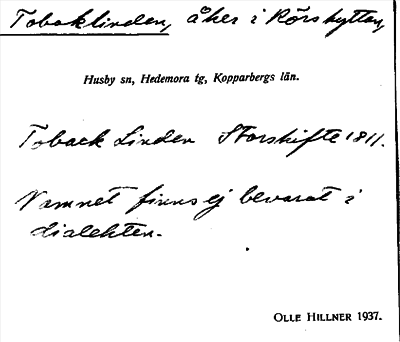 Tobaklinden, åker i Rörshyttan,
Husby sn, Hedemora tg, Kopparbergs län.
Toback Linden Storskifte 1811.
Namnet finns ej bevarat i
dialekten.
OLLE HILLNER 1937.